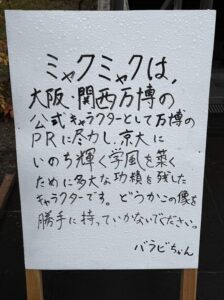 ミャクミャクは、
大阪・関西万博の
公式キャラクターとして万博の
PRに尽力し、京大に
いのち輝く学風を築く
ために多大な功績を残した
キャラクターです。どうかこの像を
勝手に持っていかないでください。
バラビちゃん